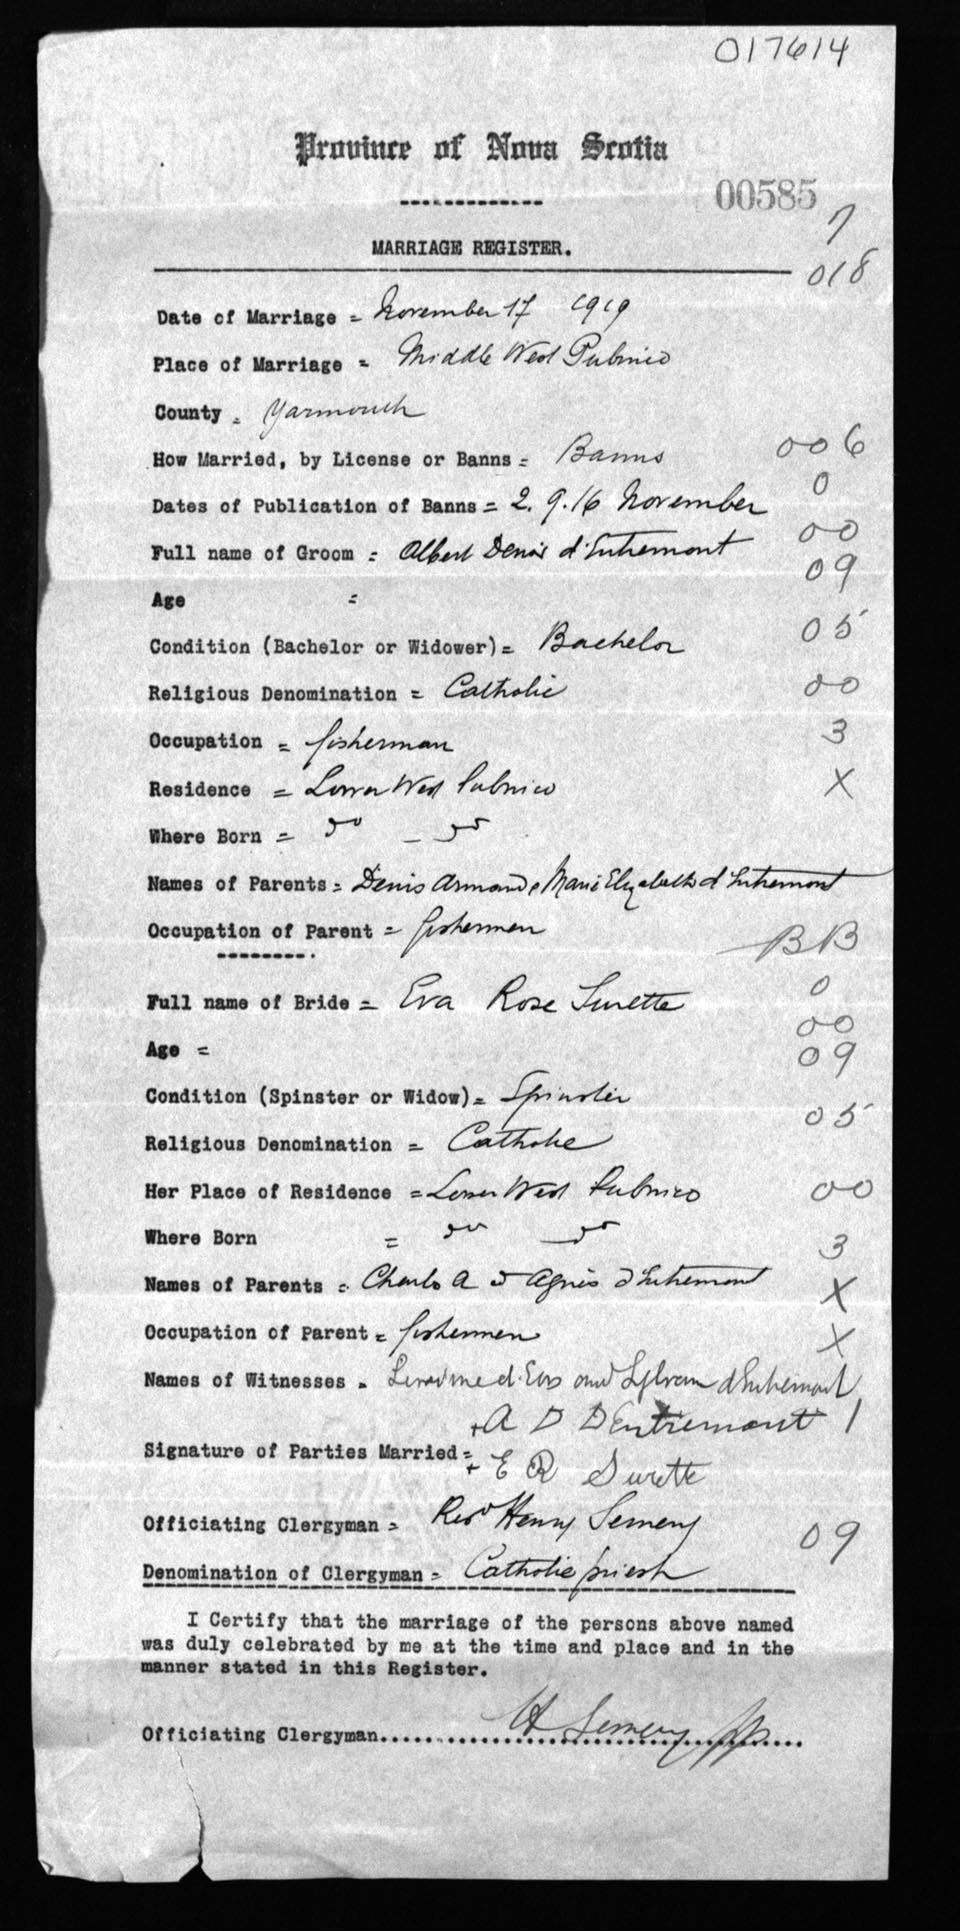 017614
Province of Nova Scotia
00585
7
MARRIAGE REGISTER.
018
Date of Marriage = November 17 1919
Place of Marriage = Middle West Pubnico
County = Yarmouth
How Married, by License or Banns = Banns 006
0
Dates of Publication of Banns = 2. 9. 16 November
00
Full name of Groom = Albert Denis d'Entremont
09
Age =
05
Condition (Bachelor or Widower) = Bachelor
Religious Denomination = Catholic 00
Occupation = fisherman 3
Residence = Lower West Pubnico X
Where Born = do - do
Names of Parents = Denis Armand & Marie Elizabeth d'Entremont
Occupation of Parent = fishermen BB
Full name of Bride = Eva Rose Surette 0
00
Age = 09
Condition (Spinster or Widow) = Spinster
05
Religious Denomination = Catholic
Her Place of Residence = Lower West Pubnico 00
Where Born = do do
3
Names of Parents = Charles A & Agnès d'Entremont X
Occupation of Parent = fishermen X
Names of Witnesses = d'Eon and Sylvain d'Entremont
+ A D DEntremont 1
Signature of Parties Married =
+ E R Surette
Officiating Clergyman = Revd Henry
09
Denomination of Clergyman = Catholic priest
I Certify that the marriage of the persons above named
was duly celebrated by me at the time and place and in the
manner stated in this Register.
Officiating Clergyman.......... H